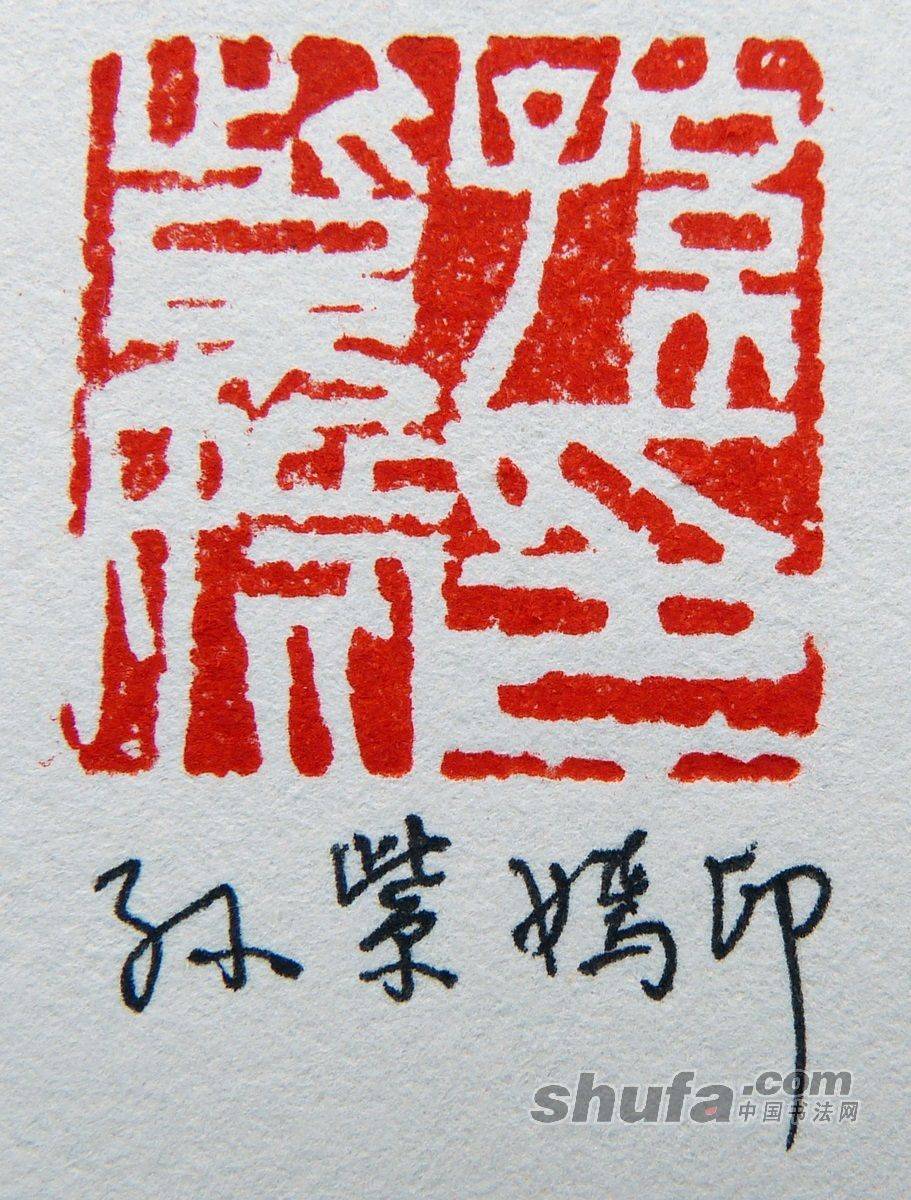 孙紫嫣印
shufa.com
中国书法网